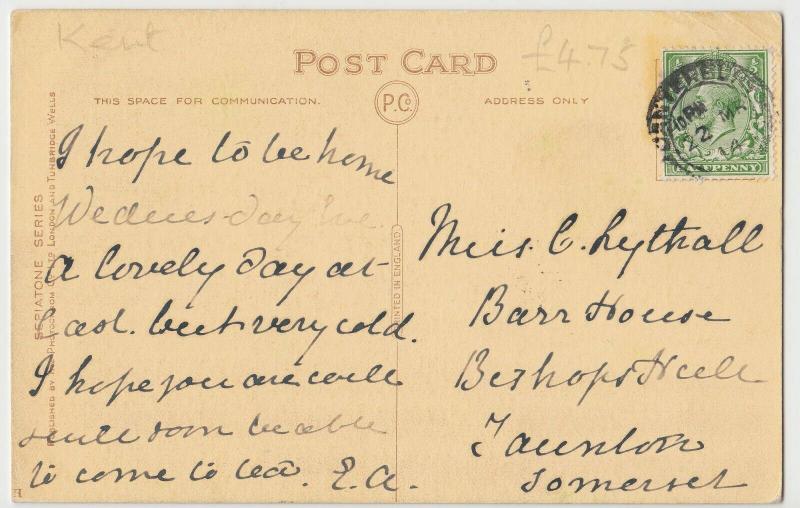 Kent
POST CARD
£4.75
THIS SPACE FOR COMMUNICATION.
P.Co.
ADDRESS ONLY
I hope to be home
Wednesday Eve.
A lovely day at
last. but very cold.
I hope you are well
soon be able
to come to tea. E.A.
Miss. C. Lythall
Barr House
Bishops Hull
Taunton
Somerset
SEPIATONE SERIES
PUBLISHED BY THE PHOTOCHROM CO. LTD. LONDON AND TUNBRIDGE WELLS
PRINTED IN ENGLAND
2 MR
14
PENNY